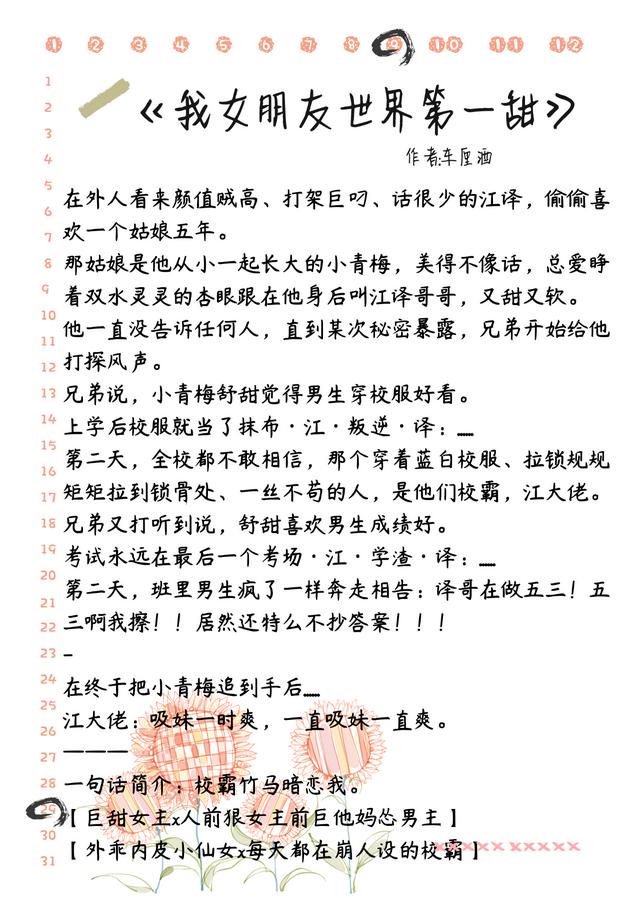 1 2 3 4 5 6 7 8 9 10 11 12
1
2
3
4
5
6
7
8
9
10
11
12
13
14
15
16
17
18
19
20
21
22
23
24
25
26
27
28
29
30
31
《我女朋友世界第一甜》
作者:车厘酒
在外人看来颜值贼高、打架巨叼、话很少的江译,偷偷喜
欢一个姑娘五年。
那姑娘是他从小一起长大的小青梅,美得不像话,总爱睁
着双水灵灵的杏眼跟在他身后叫江译哥哥,又甜又软。
他一直没告诉任何人,直到某次秘密暴露,兄弟开始给他
打探风声。
兄弟说,小青梅舒甜觉得男生穿校服好看。
上学后校服就当了抹布·江·叛逆·译:……
第二天,全校都不敢相信,那个穿着蓝白校服、拉锁规规
矩矩拉到锁骨处、一丝不苟的人,是他们校霸,江大佬。
兄弟又打听到说,舒甜喜欢男生成绩好。
考试永远在最后一个考场·江·学渣·译:……
第二天,班里男生疯了一样奔走相告:译哥在做五三!五
三啊我擦!!居然还特么不抄答案!!!
-
在终于把小青梅追到手后……
江大佬:吸妹一时爽,一直吸妹一直爽。
———
一句话简介:校霸竹马暗恋我。
【巨甜女主x人前狠女主前巨他妈怂男主】
【外乖内皮小仙女x每天都在崩人设的校霸】